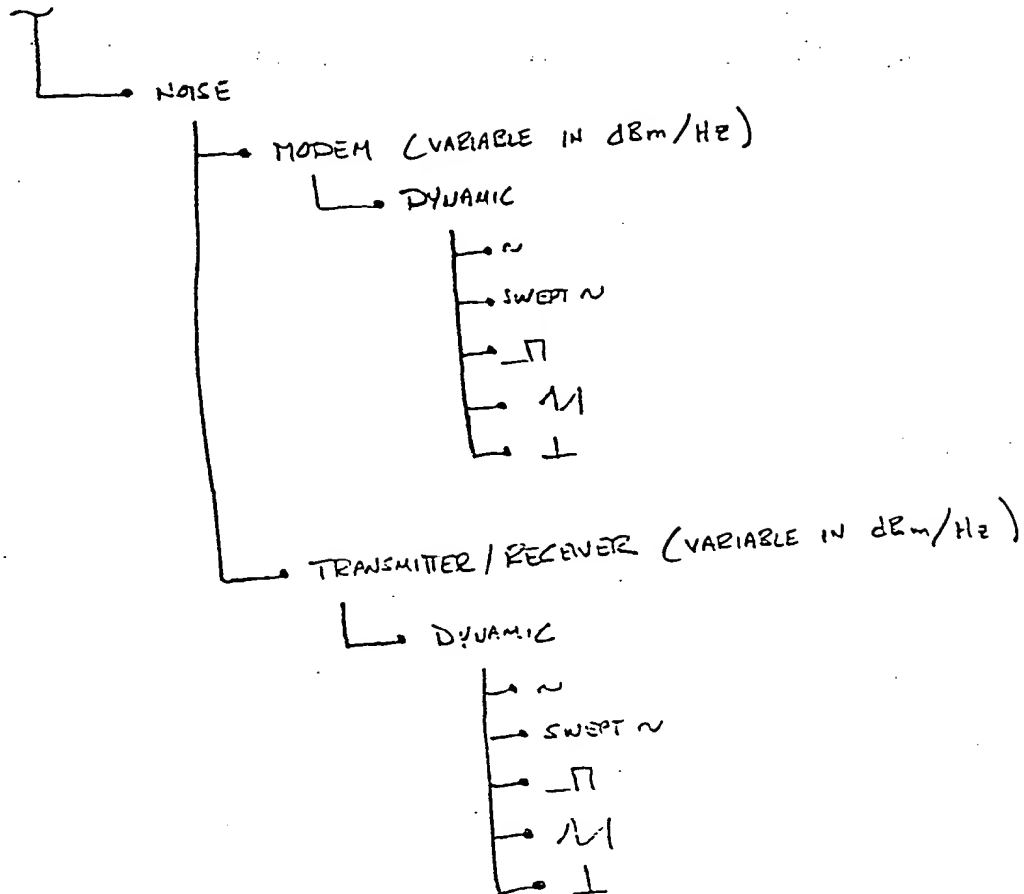 NOISE
MODEM (VARIABLE IN dBm/Hz)
DYNAMIC
~
SWEPT ~
TRANSMITTER/RECEIVER (VARIABLE IN dBm/Hz)
DYNAMIC
~
SWEPT ~